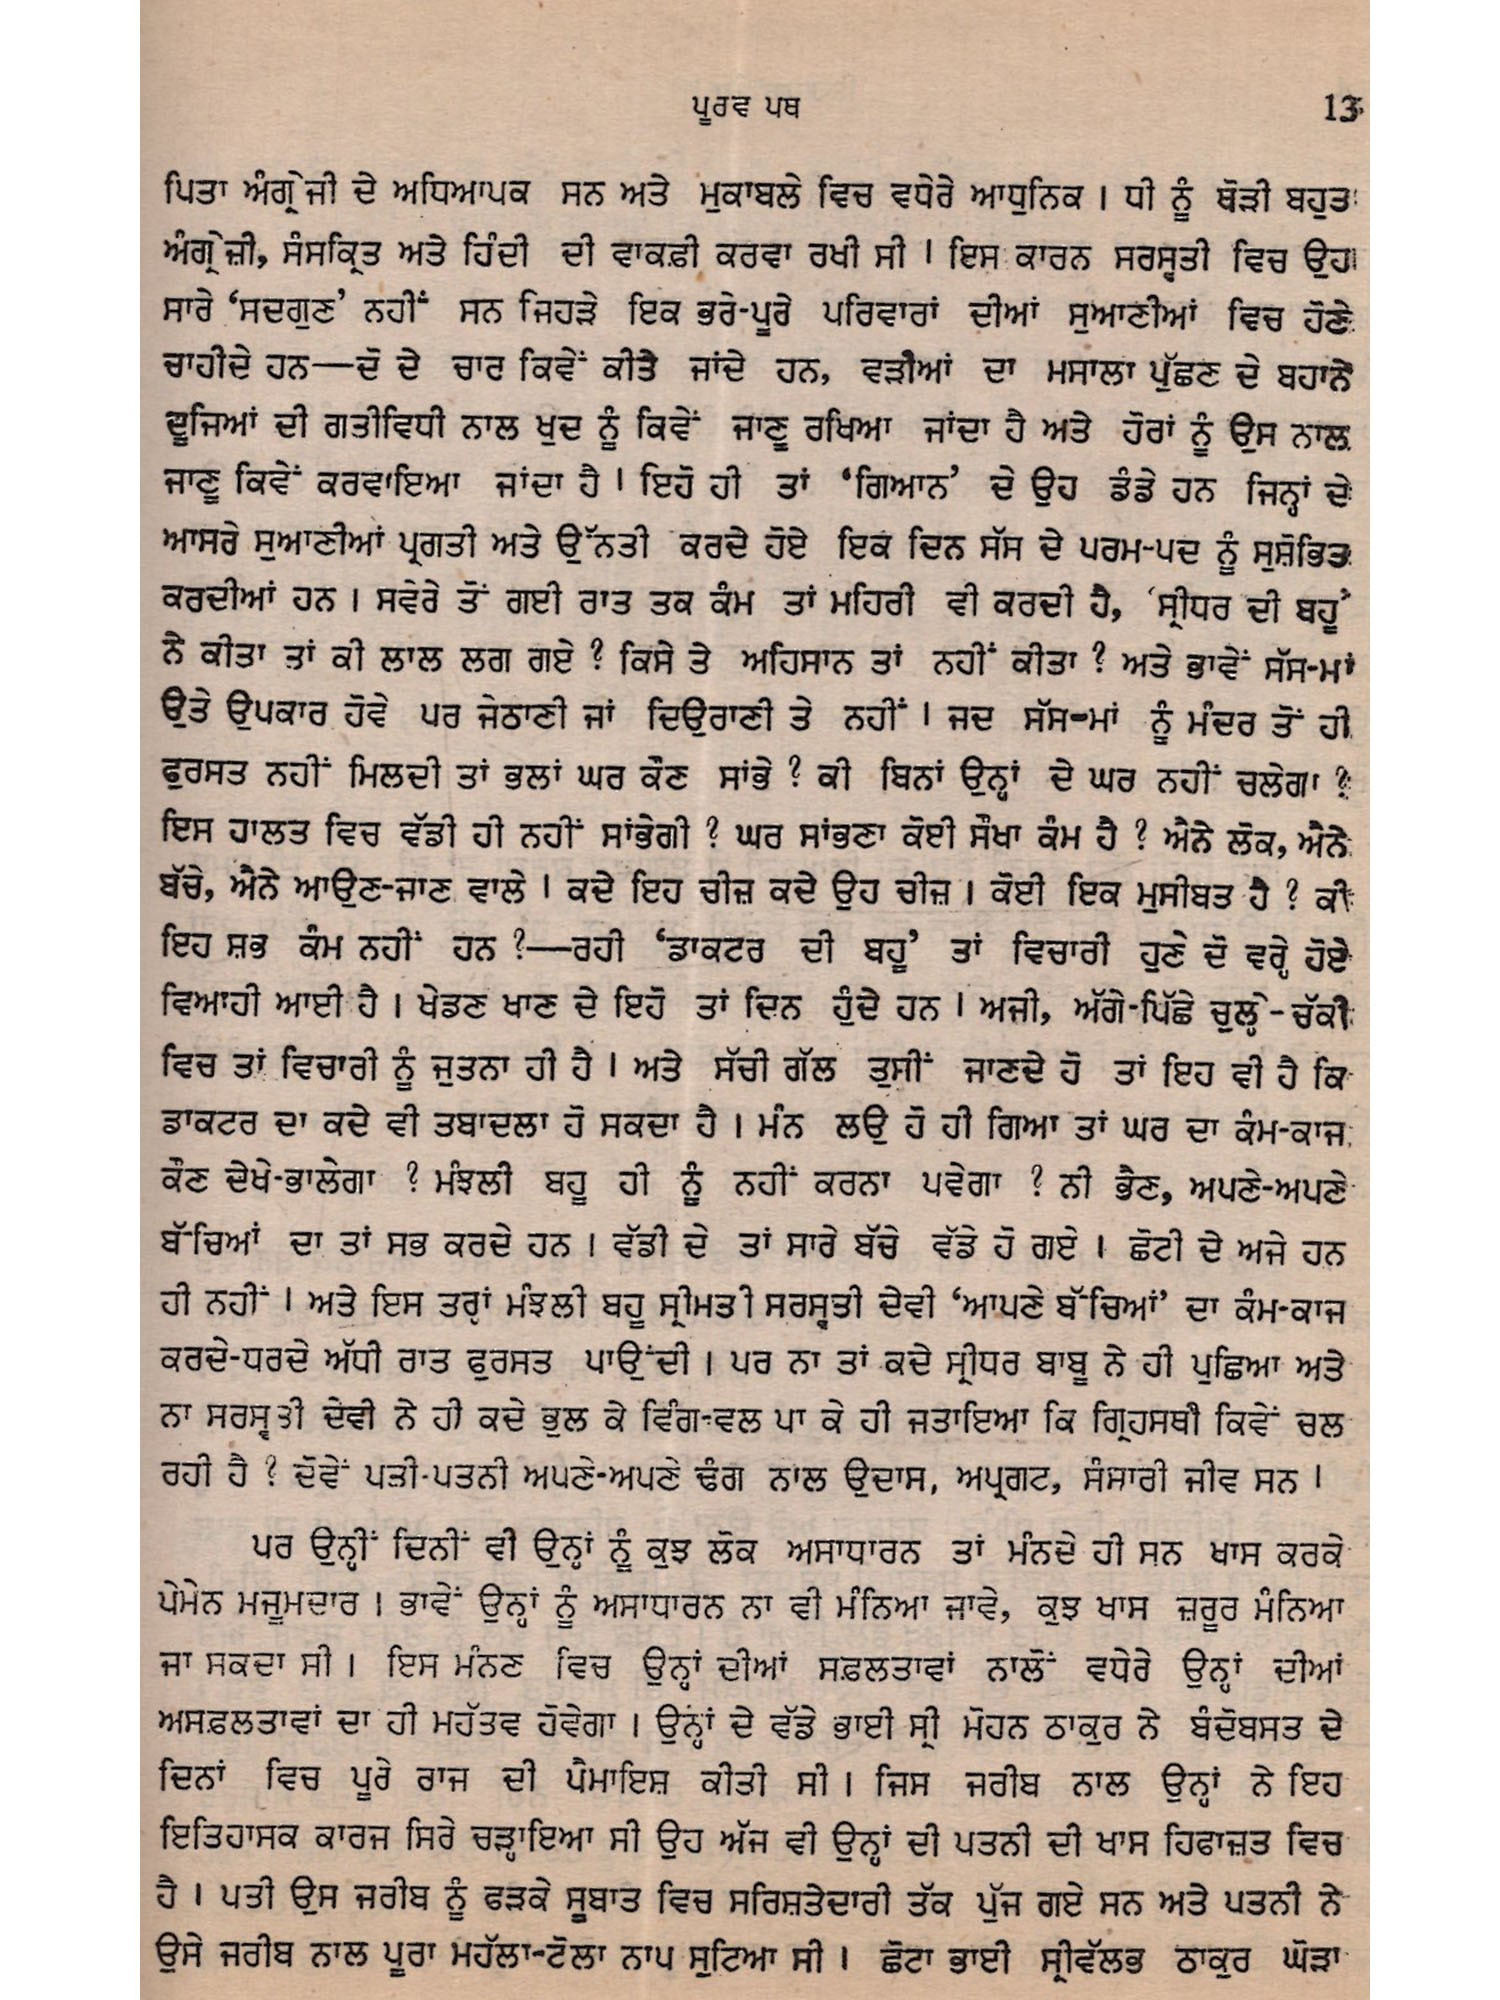 ਪੂਰਵ ਪਥ 13
ਪਿਤਾ ਅੰਗ੍ਰੇਜੀ ਦੇ ਅਧਿਆਪਕ ਸਨ ਅਤੇ ਮੁਕਾਬਲੇ ਵਿਚ ਵਧੇਰੇ ਆਧੁਨਿਕ । ਧੀ ਨੂੰ ਥੋੜੀ ਬਹੁਤ
ਅੰਗ੍ਰੇਜ਼ੀ, ਸੰਸਕ੍ਰਿਤ ਅਤੇ ਹਿੰਦੀ ਦੀ ਵਾਕਫ਼ੀ ਕਰਵਾ ਰਖੀ ਸੀ । ਇਸ ਕਾਰਨ ਸਰਸ੍ਵਤੀ ਵਿਚ ਉਹ
ਸਾਰੇ ‘ਸਦਗੁਣ’ ਨਹੀਂ ਸਨ ਜਿਹੜੇ ਇਕ ਭਰੇ-ਪੂਰੇ ਪਰਿਵਾਰਾਂ ਦੀਆਂ ਸੁਆਣੀਆਂ ਵਿਚ ਹੋਣੇ
ਚਾਹੀਦੇ ਹਨ—ਦੋ ਦੇ ਚਾਰ ਕਿਵੇਂ ਕੀਤੇ ਜਾਂਦੇ ਹਨ, ਵੜੀਆਂ ਦਾ ਮਸਾਲਾ ਪੁੱਛਣ ਦੇ ਬਹਾਨੇ
ਦੂਜਿਆਂ ਦੀ ਗਤੀਵਿਧੀ ਨਾਲ ਖੁਦ ਨੂੰ ਕਿਵੇਂ ਜਾਣੂ ਰਖਿਆ ਜਾਂਦਾ ਹੈ ਅਤੇ ਹੋਰਾਂ ਨੂੰ ਉਸ ਨਾਲ
ਜਾਣੂ ਕਿਵੇਂ ਕਰਵਾਇਆ ਜਾਂਦਾ ਹੈ । ਇਹੋ ਹੀ ਤਾਂ ‘ਗਿਆਨ’ ਦੇ ਉਹ ਡੰਡੇ ਹਨ ਜਿਨ੍ਹਾਂ ਦੇ
ਆਸਰੇ ਸੁਆਣੀਆਂ ਪ੍ਰਗਤੀ ਅਤੇ ਉੱਨਤੀ ਕਰਦੇ ਹੋਏ ਇਕ ਦਿਨ ਸੱਸ ਦੇ ਪਰਮ-ਪਦ ਨੂੰ ਸੁਸ਼ੋਭਿਤ
ਕਰਦੀਆਂ ਹਨ । ਸਵੇਰੇ ਤੋਂ ਗਈ ਰਾਤ ਤਕ ਕੰਮ ਤਾਂ ਮਹਿਰੀ ਵੀ ਕਰਦੀ ਹੈ, ‘ਸ੍ਰੀਧਰ ਦੀ ਬਹੂ’
ਨੇ ਕੀਤਾ ਤਾਂ ਕੀ ਲਾਲ ਲਗ ਗਏ ? ਕਿਸੇ ਤੇ ਅਹਿਸਾਨ ਤਾਂ ਨਹੀਂ ਕੀਤਾ ? ਅਤੇ ਭਾਵੇਂ ਸੱਸ-ਮਾਂ
ਉਤੇ ਉਪਕਾਰ ਹੋਵੇ ਪਰ ਜੇਠਾਣੀ ਜਾਂ ਦਿਉਰਾਣੀ ਤੇ ਨਹੀਂ । ਜਦ ਸੱਸ-ਮਾਂ ਨੂੰ ਮੰਦਰ ਤੋਂ ਹੀ
ਫੁਰਸਤ ਨਹੀਂ ਮਿਲਦੀ ਤਾਂ ਭਲਾਂ ਘਰ ਕੌਣ ਸਾਂਭੇ ? ਕੀ ਬਿਨਾਂ ਉਨ੍ਹਾਂ ਦੇ ਘਰ ਨਹੀਂ ਚਲੇਗਾ ?
ਇਸ ਹਾਲਤ ਵਿਚ ਵੱਡੀ ਹੀ ਨਹੀਂ ਸਾਂਭੇਗੀ ? ਘਰ ਸਾਂਭਣਾ ਕੋਈ ਸੌਖਾ ਕੰਮ ਹੈ ? ਐਨੇ ਲੋਕ, ਐਨੇ
ਬੱਚੇ, ਐਨੇ ਆਉਣ-ਜਾਣ ਵਾਲੇ । ਕਦੇ ਇਹ ਚੀਜ਼ ਕਦੇ ਉਹ ਚੀਜ਼ । ਕੋਈ ਇਕ ਮੁਸੀਬਤ ਹੈ ? ਕੀ
ਇਹ ਸ਼ਭ ਕੰਮ ਨਹੀਂ ਹਨ ?—ਰਹੀ ‘ਡਾਕਟਰ ਦੀ ਬਹੂ’ ਤਾਂ ਵਿਚਾਰੀ ਹੁਣੇ ਦੋ ਵਰ੍ਹੇ ਹੋਏ
ਵਿਆਹੀ ਆਈ ਹੈ । ਖੇਡਣ ਖਾਣ ਦੇ ਇਹੋ ਤਾਂ ਦਿਨ ਹੁੰਦੇ ਹਨ । ਅਜੀ, ਅੱਗੇ-ਪਿੱਛੇ ਚੁਲ੍ਹੇ-ਚੱਕੀ
ਵਿਚ ਤਾਂ ਵਿਚਾਰੀ ਨੂੰ ਜੁਤਨਾ ਹੀ ਹੈ । ਅਤੇ ਸੱਚੀ ਗੱਲ ਤੁਸੀਂ ਜਾਣਦੇ ਹੋ ਤਾਂ ਇਹ ਵੀ ਹੈ ਕਿ
ਡਾਕਟਰ ਦਾ ਕਦੇ ਵੀ ਤਬਾਦਲਾ ਹੋ ਸਕਦਾ ਹੈ । ਮੰਨ ਲਉ ਹੋ ਹੀ ਗਿਆ ਤਾਂ ਘਰ ਦਾ ਕੰਮ-ਕਾਜ
ਕੌਣ ਦੇਖੇ-ਭਾਲੇਗਾ ? ਮੰਝਲੀ ਬਹੂ ਹੀ ਨੂੰ ਨਹੀਂ ਕਰਨਾ ਪਵੇਗਾ ? ਨੀ ਭੈਣ, ਅਪਣੇ-ਅਪਣੇ
ਬੱਚਿਆਂ ਦਾ ਤਾਂ ਸਭ ਕਰਦੇ ਹਨ । ਵੱਡੀ ਦੇ ਤਾਂ ਸਾਰੇ ਬੱਚੇ ਵੱਡੇ ਹੋ ਗਏ । ਛੋਟੀ ਦੇ ਅਜੇ ਹਨ
ਹੀ ਨਹੀਂ । ਅਤੇ ਇਸ ਤਰ੍ਹਾਂ ਮੰਝਲੀ ਬਹੂ ਸ੍ਰੀਮਤੀ ਸਰਸ੍ਵਤੀ ਦੇਵੀ ‘ਆਪਣੇ ਬੱਚਿਆਂ’ ਦਾ ਕੰਮ-ਕਾਜ
ਕਰਦੇ-ਧਰਦੇ ਅੱਧੀ ਰਾਤ ਫੁਰਸਤ ਪਾਉਂਦੀ । ਪਰ ਨਾ ਤਾਂ ਕਦੇ ਸ੍ਰੀਧਰ ਬਾਬੂ ਨੇ ਹੀ ਪੁਛਿਆ ਅਤੇ
ਨਾ ਸਰਸ੍ਵਤੀ ਦੇਵੀ ਨੇ ਹੀ ਕਦੇ ਭੁਲ ਕੇ ਵਿੰਗ-ਵਲ ਪਾ ਕੇ ਹੀ ਜਤਾਇਆ ਕਿ ਗ੍ਰਿਹਸਥੀ ਕਿਵੇਂ ਚਲ
ਰਹੀ ਹੈ ? ਦੋਵੇਂ ਪਤੀ-ਪਤਨੀ ਅਪਣੇ-ਅਪਣੇ ਢੰਗ ਨਾਲ ਉਦਾਸ, ਅਪ੍ਰਗਟ, ਸੰਸਾਰੀ ਜੀਵ ਸਨ ।
ਪਰ ਉਨ੍ਹੀਂ ਦਿਨੀਂ ਵੀ ਉਨ੍ਹਾਂ ਨੂੰ ਕੁਝ ਲੋਕ ਅਸਾਧਾਰਨ ਤਾਂ ਮੰਨਦੇ ਹੀ ਸਨ ਖਾਸ ਕਰਕੇ
ਪੇਮੇਨ ਮਜੂਮਦਾਰ । ਭਾਵੇਂ ਉਨ੍ਹਾਂ ਨੂੰ ਅਸਾਧਾਰਨ ਨਾ ਵੀ ਮੰਨਿਆ ਜਾਵੇ, ਕੁਝ ਖਾਸ ਜ਼ਰੂਰ ਮੰਨਿਆ
ਜਾ ਸਕਦਾ ਸੀ । ਇਸ ਮੰਨਣ ਵਿਚ ਉਨ੍ਹਾਂ ਦੀਆਂ ਸਫ਼ਲਤਾਵਾਂ ਨਾਲੋਂ ਵਧੇਰੇ ਉਨ੍ਹਾਂ ਦੀਆਂ
ਅਸਫ਼ਲਤਾਵਾਂ ਦਾ ਹੀ ਮਹੱਤਵ ਹੋਵੇਗਾ । ਉਨ੍ਹਾਂ ਦੇ ਵੱਡੇ ਭਾਈ ਸ੍ਰੀ ਮੋਹਨ ਠਾਕੁਰ ਨੇ ਬੰਦੋਬਸਤ ਦੇ
ਦਿਨਾਂ ਵਿਚ ਪੂਰੇ ਰਾਜ ਦੀ ਪੈਮਾਇਸ਼ ਕੀਤੀ ਸੀ । ਜਿਸ ਜਰੀਬ ਨਾਲ ਉਨ੍ਹਾਂ ਨੇ ਇਹ
ਇਤਿਹਾਸਕ ਕਾਰਜ ਸਿਰੇ ਚੜ੍ਹਾਇਆ ਸੀ ਉਹ ਅੱਜ ਵੀ ਉਨ੍ਹਾਂ ਦੀ ਪਤਨੀ ਦੀ ਖਾਸ ਹਿਫਾਜ਼ਤ ਵਿਚ
ਹੈ । ਪਤੀ ਉਸ ਜਰੀਬ ਨੂੰ ਫੜਕੇ ਸੂਬਾਤ ਵਿਚ ਸਰਿਸ਼ਤੇਦਾਰੀ ਤੱਕ ਪੁੱਜ ਗਏ ਸਨ ਅਤੇ ਪਤਨੀ ਨੇ
ਉਸੇ ਜਰੀਬ ਨਾਲ ਪੂਰਾ ਮਹੱਲਾ-ਟੋਲਾ ਨਾਪ ਸੁਟਿਆ ਸੀ । ਛੋਟਾ ਭਾਈ ਸ੍ਰੀਵੱਲਭ ਠਾਕੁਰ ਘੋੜਾ